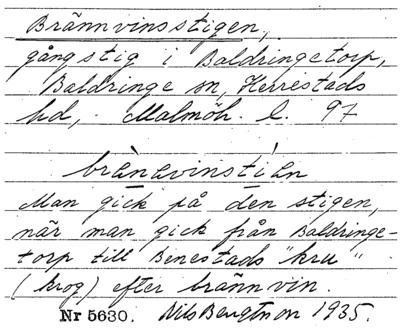 Brännvinsstigen,
gångstig i Baldringetorp,
Baldringe sn, Herrestads
hd, Malmöh. l. 97
brènavinstìən
Man gick på den stigen,
när man gick från Baldringe-
torp till Benestads "kru"
(krog) efter brännvin.
Nr 5630. Nils Bengtson 1935.